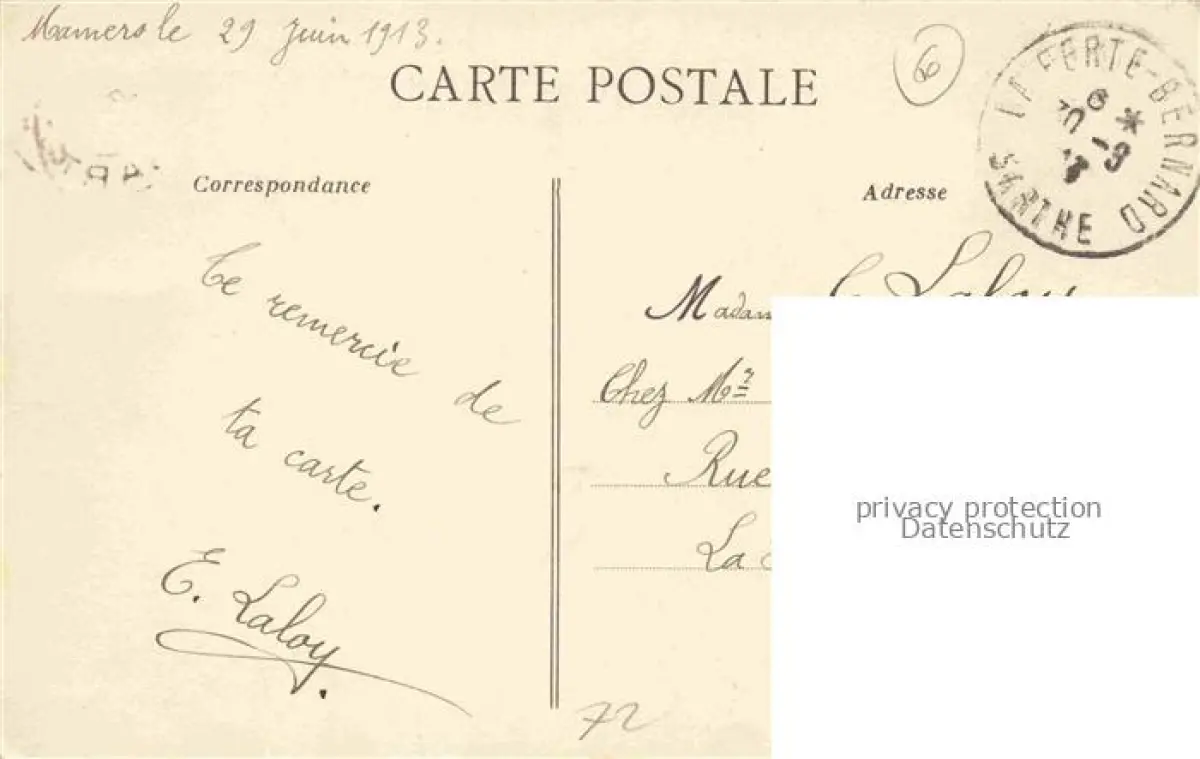 Mamers le 29 Juin 1913.
6
CARTE POSTALE
LA FERTE-BERNARD
SARTHE
Correspondance
Adresse
Te remercie de
ta carte.
E. Laloy.
Laloy
Chez Mr
Rue
La
72
privacy protection
Datenschutz